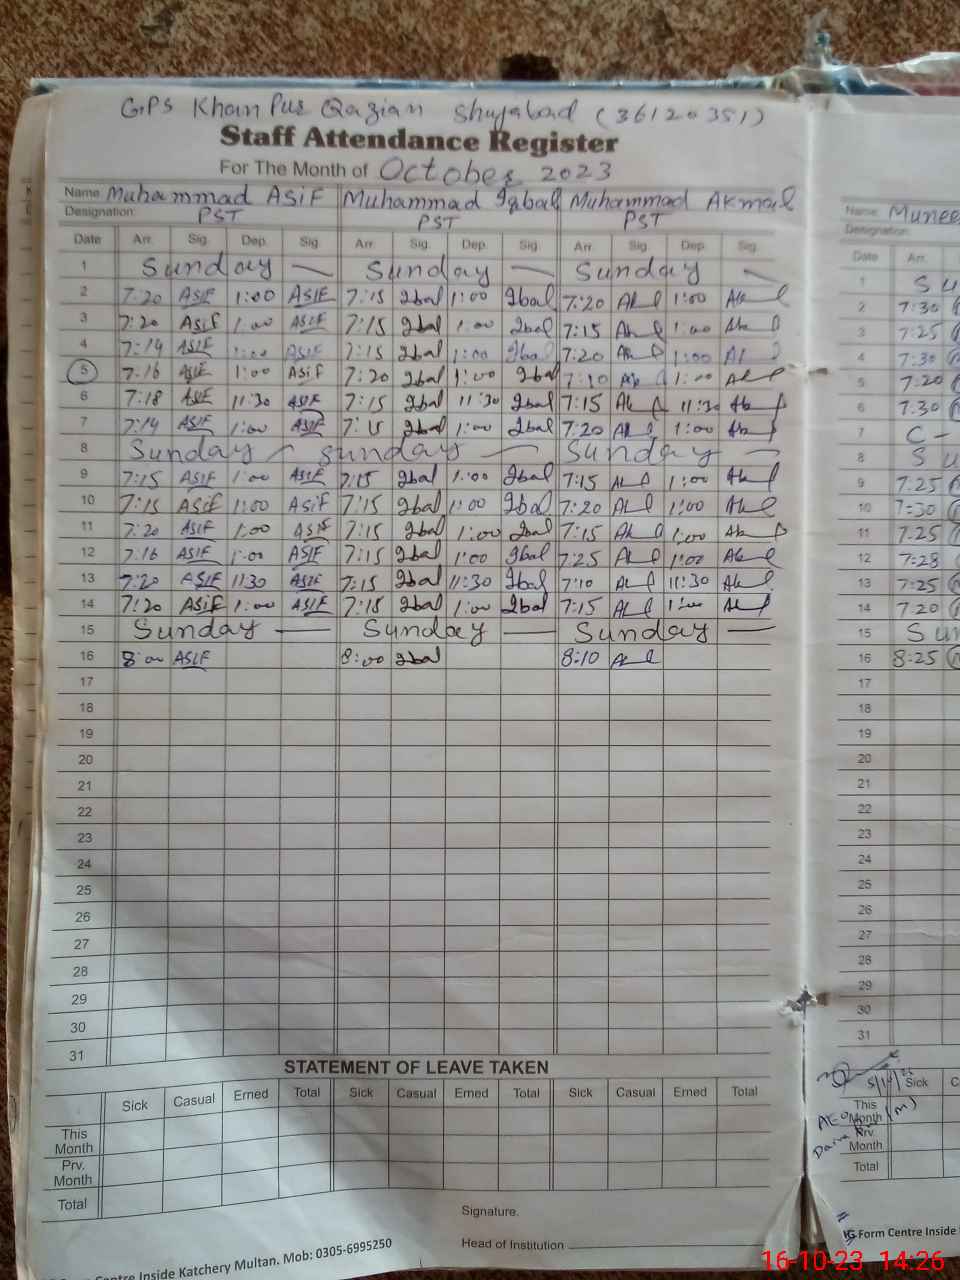 GPS Khan Pur Qazian Shujabad (36120351)
Staff Attendance Register
For The Month of October 2023
Name: Muhammad ASiF Muhammad Iqbal Muhammad AKmal
Designation: PST PST PST
Date Arr. Sig. Dep. Sig. Arr. Sig. Dep. Sig. Arr. Sig. Dep. Sig.
1 Sunday — Sunday — Sunday
2 7:20 ASIF 1:00 ASIF 7:15 Iqbal 1:00 Iqbal 7:20 1:00
3 7:20 ASIF 1:00 ASIF 7:15 Iqbal 1:00 Iqbal 7:15 1:00
4 7:14 ASIF 1:00 ASIF 7:15 Iqbal 1:00 Iqbal 7:20 1:00
5 7:16 ASIF 1:00 ASIF 7:20 Iqbal 1:00 Iqbal 7:10 1:00
6 7:18 ASIF 11:30 ASIF 7:15 Iqbal 11:30 Iqbal 7:15 11:30
7 7:14 ASIF 1:00 ASIF 7:15 Iqbal 1:00 Iqbal 7:20 1:00
8 Sunday — Sunday — Sunday —
9 7:15 ASIF 1:00 ASIF 7:15 Iqbal 1:00 Iqbal 7:15 1:00
10 7:15 ASiF 1:00 ASiF 7:15 Iqbal 1:00 Iqbal 7:20 1:00
11 7:20 ASIF 1:00 ASIF 7:15 Iqbal 1:00 Iqbal 7:15 1:00
12 7:16 ASIF 1:00 ASIF 7:15 Iqbal 1:00 Iqbal 7:25 1:00
13 7:20 ASIF 11:30 ASIF 7:15 Iqbal 11:30 Iqbal 7:10 11:30
14 7:20 ASiF 1:00 ASIF 7:15 Iqbal 1:00 Iqbal 7:15 1:00
15 Sunday — Sunday — Sunday —
16 8:00 ASIF 8:00 Iqbal 8:10
17
18
19
20
21
22
23
24
25
26
27
28
29
30
31
STATEMENT OF LEAVE TAKEN
Sick Casual Erned Total Sick Casual Erned Total Sick Casual Erned Total
This Month
Prv. Month
Total
Signature.
Head of Institution
Form Centre Inside Katchery Multan. Mob: 0305-6995250
Name: Munee
Designation:
Date Arr.
1 Su
2 7:30
3 7:25
4 7:30
5 7:20
6 7:30
7 C-
8 Su
9 7:25
10 7:30
11 7:25
12 7:28
13 7:25
14 7:20
15 Sun
16 8:25
17
18
19
20
21
22
23
24
25
26
27
28
29
30
31
Sick C
This Month
Prv. Month
Total
AEO (M)
Form Centre Inside
16-10-23 14:26